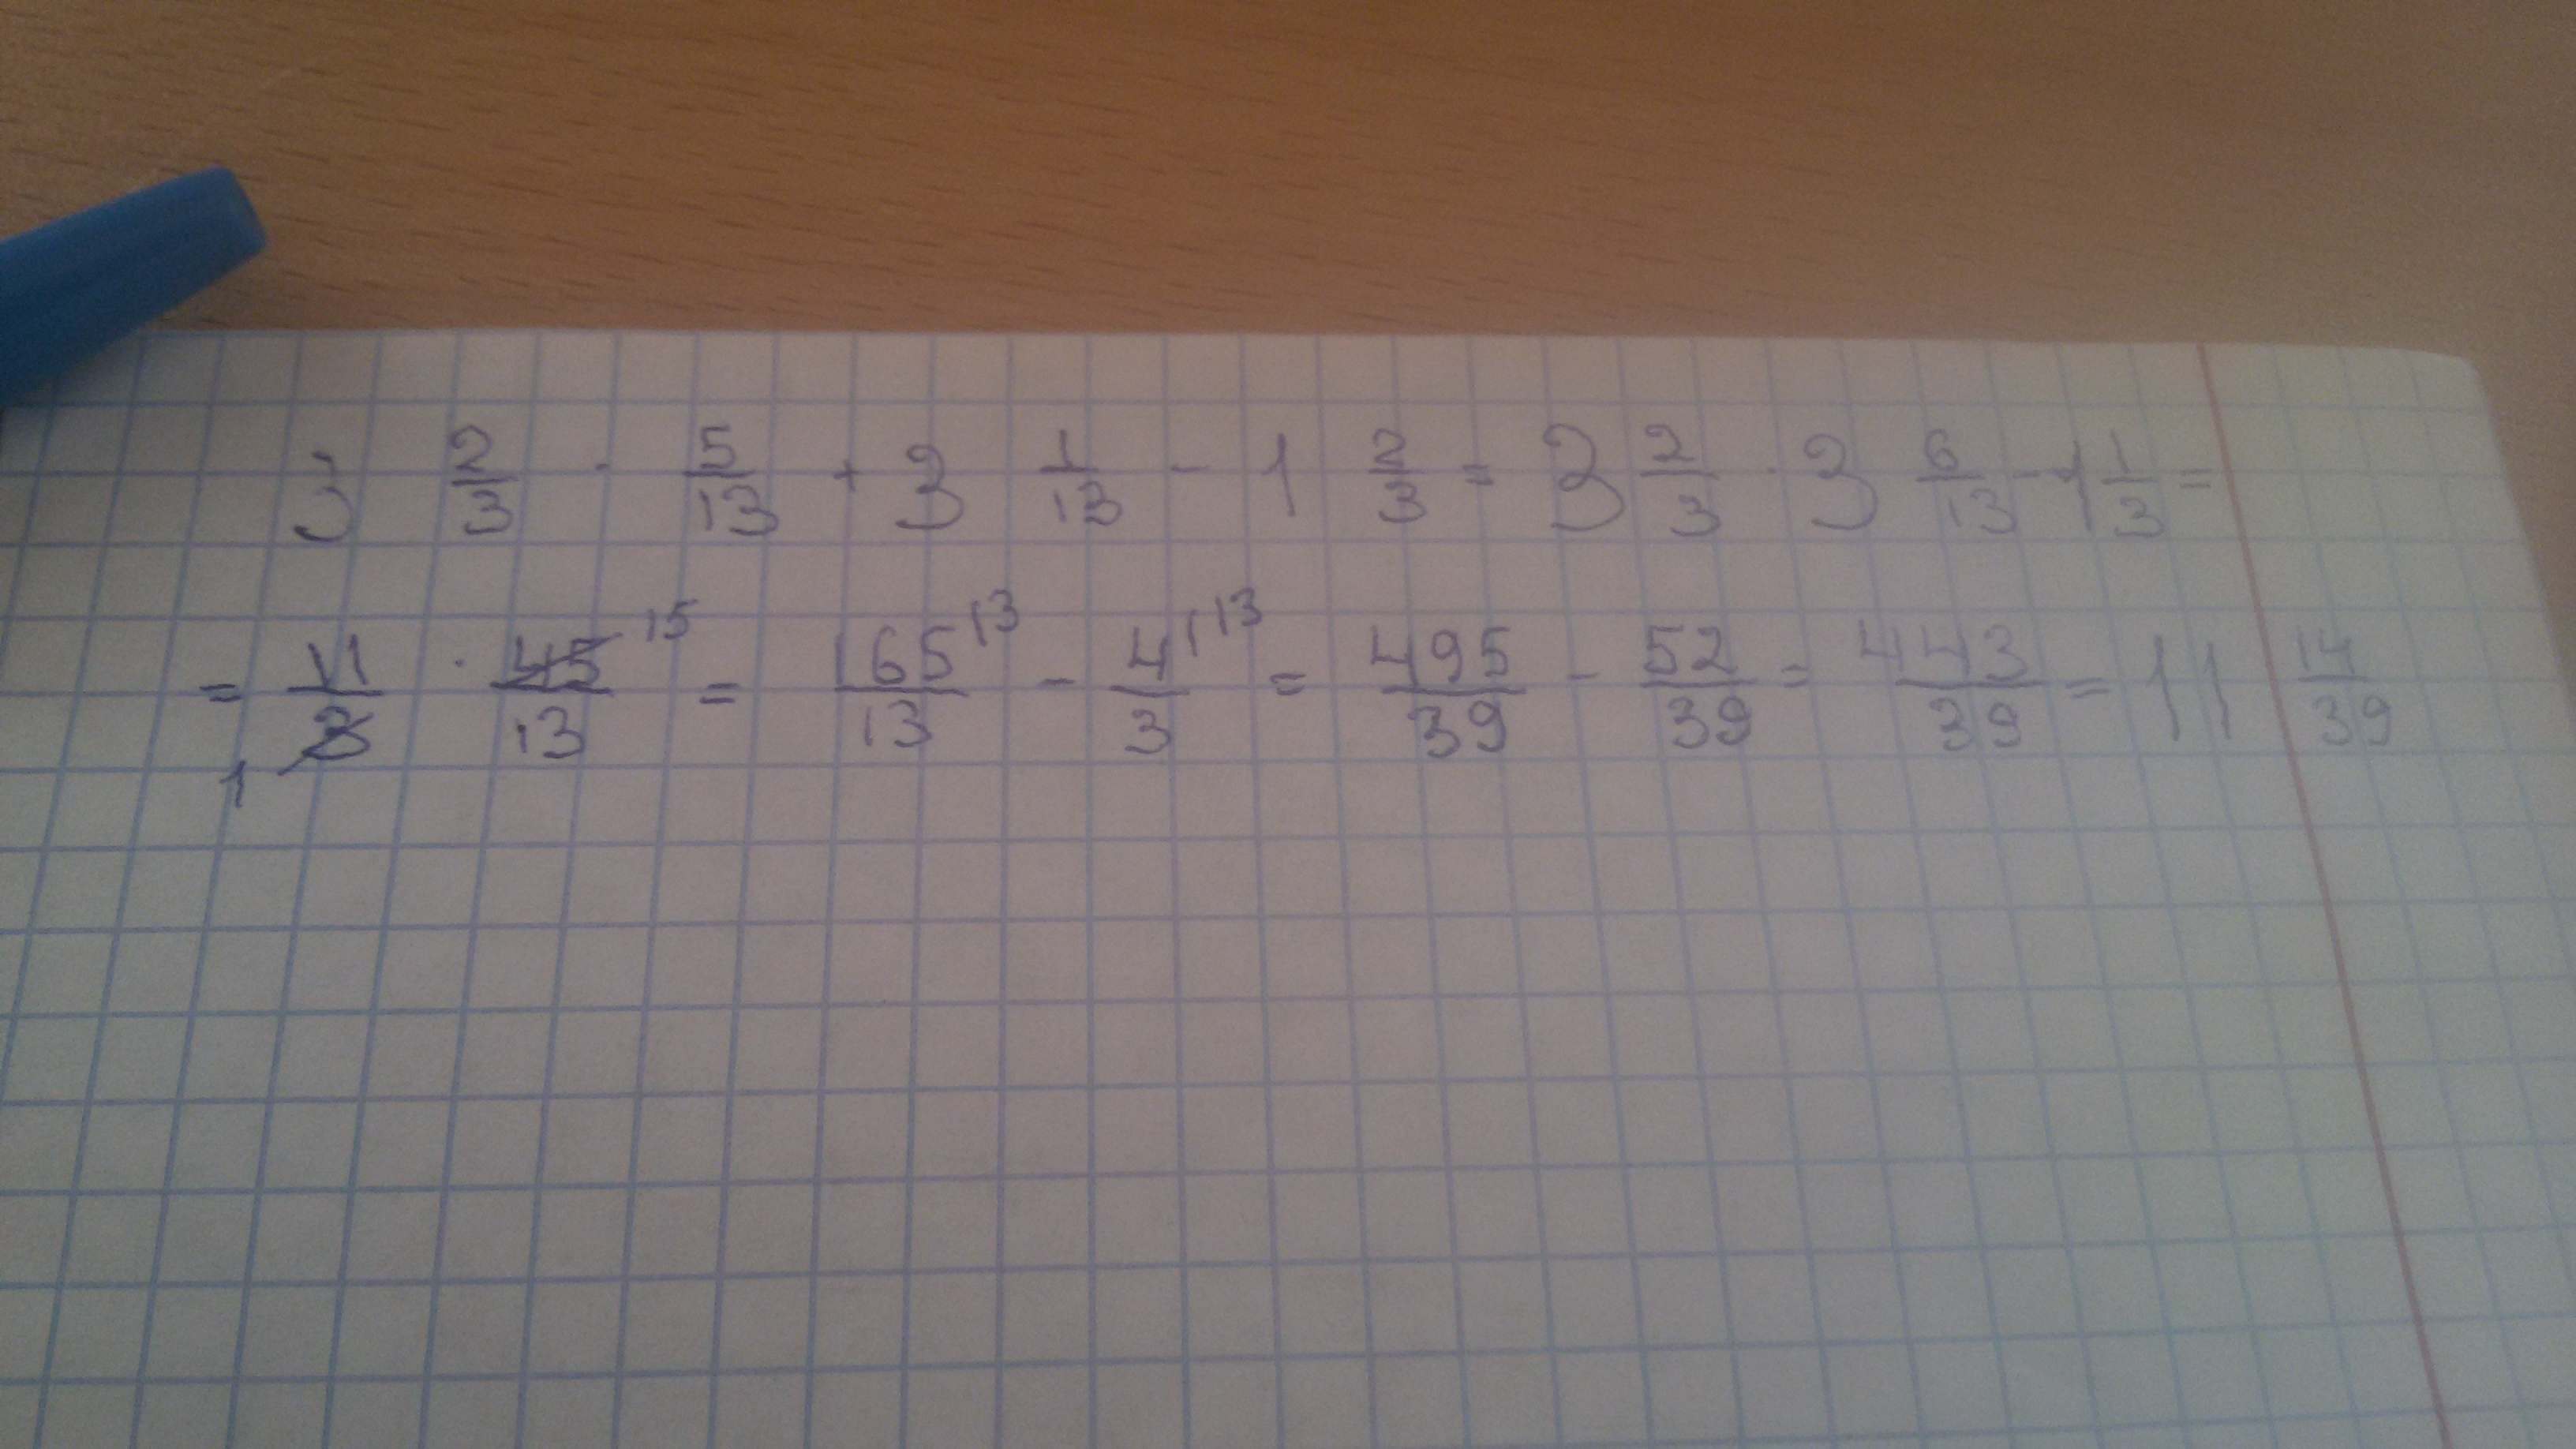 3 2/3 · 5/13 + 3 1/13 - 1 2/3 = 3 2/3 · 3 6/13 - 1 1/3 =
= 11/3 1 · 45/13 15 = 165/13 13 - 4/3 13 = 495/39 - 52/39 = 443/39 = 11 14/39